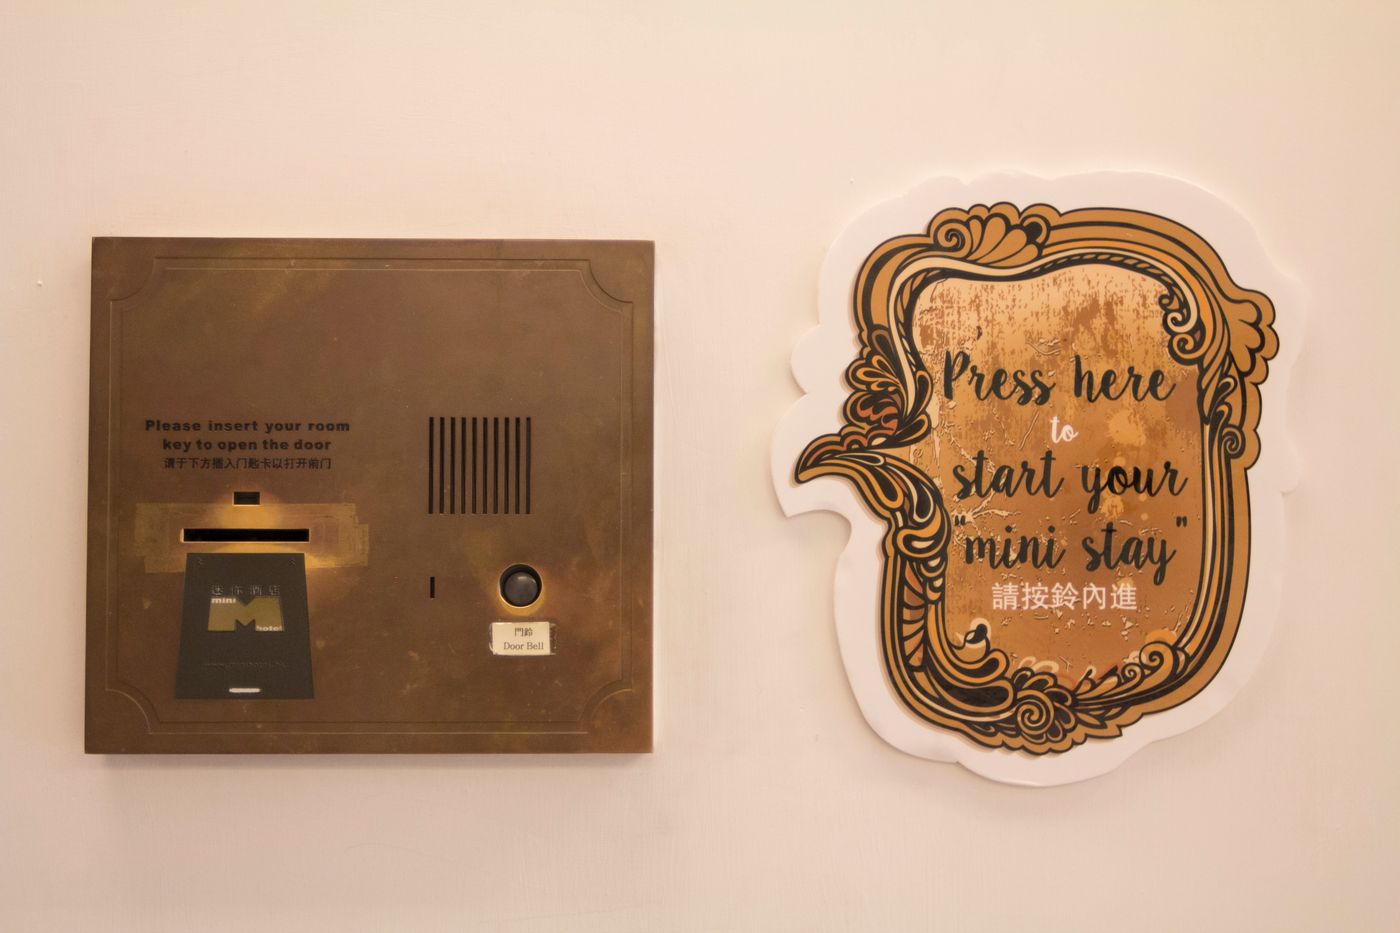 Please insert your room
key to open the door
请于下方插入门匙卡以打开前门
迷你酒店
mini
M
hotel
門鈴
Door Bell
Press here
to
start your
"mini stay"
請按鈴內進